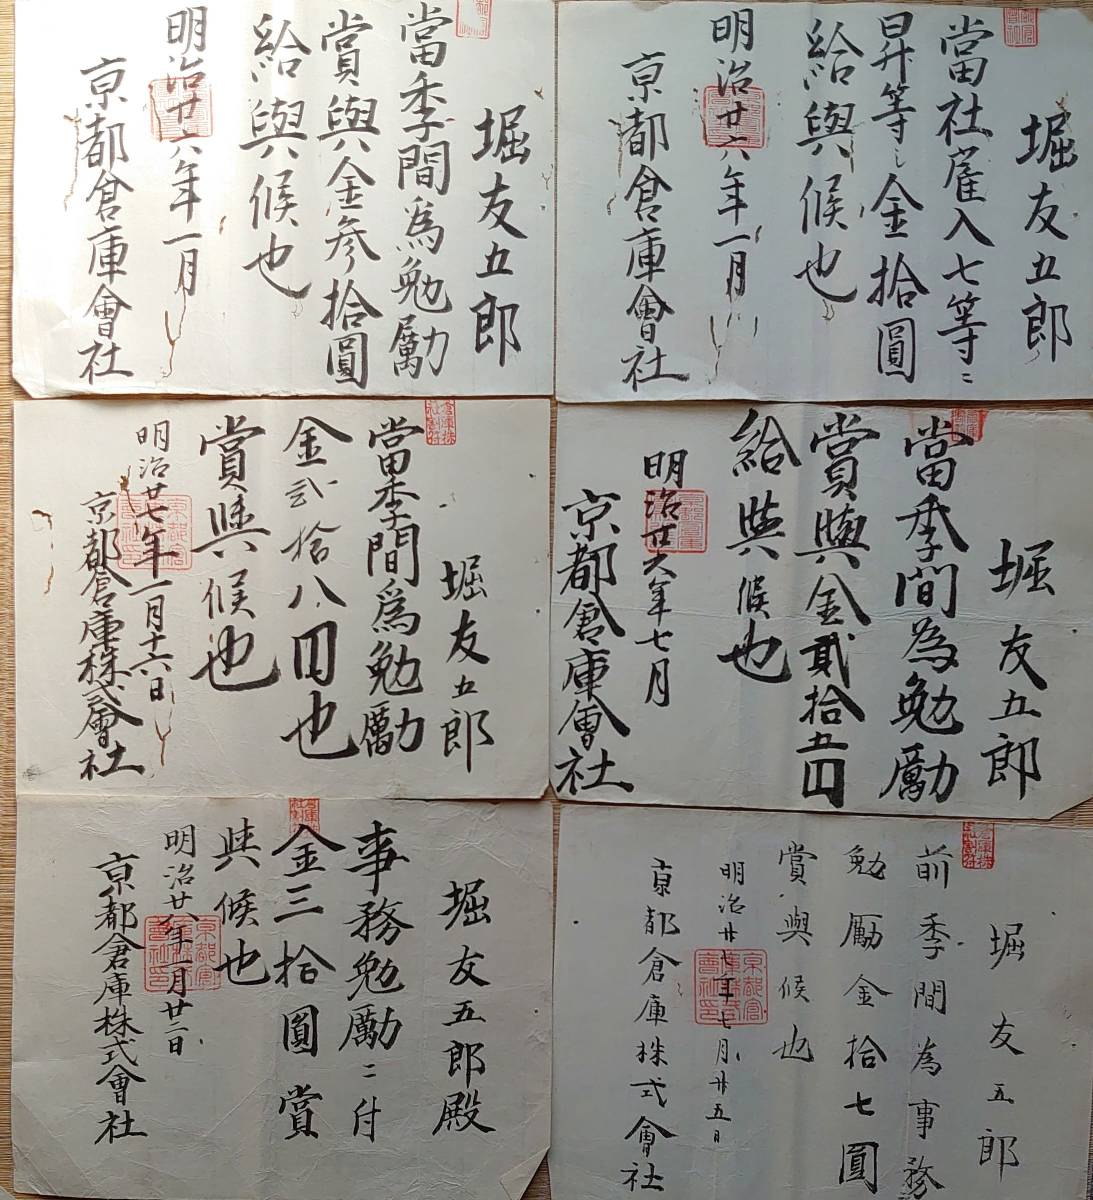 堀友五郎
當社雇入七等ニ
昇等シ金拾圓
給與候也
明治廿六年一月
京都倉庫會社
堀友五郎
當季間為勉勵
賞與金参拾圓
給與候也
明治廿六年一月
京都倉庫會社
堀友五郎
當季間為勉勵
賞與金貳拾五円
給與候也
明治廿六年七月
京都倉庫會社
堀友五郎
當季間為勉勵
金弐拾八円也
賞與候也
明治廿七年一月十六日
京都倉庫株式會社
堀友五郎
前季間為事務
勉勵金拾七圓
賞與候也
明治廿七年七月廿五日
京都倉庫株式會社
堀友五郎殿
事務勉勵ニ付
金三拾圓賞
與候也
明治廿八年一月廿二日
京都倉庫株式會社
京都倉
庫株式
會社印